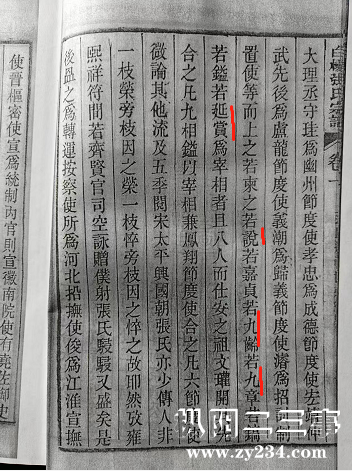 張氏宗譜 卷
大理丞守珪為幽州節度使孝忠為成德節度使仲
武先後為盧龍節度使義潮為歸義節度使濬為招制
置使等而上之若柬之若說若嘉貞若九齡若九章鎬
若鎰若延賞為宰相者且八人而仕安之祖文瓘開先
合之凡九相鎰以宰相兼鳳翔節度使合之凡六節度
微論其他流及五季閱宋太平興國朝張氏亦少傳人非
一枝榮旁枝因之榮一枝悴旁枝因之悴之故耶然攷雍
熙祥符間若齊賢官司空詠贈僕射張氏駸駸又盛矣是
後盈之為轉運按察使所為河北招撫使俊為江淮宣撫
使晉樞密使宣為統制內官則宣徽南院使有堯佐御史
www.zy234.com